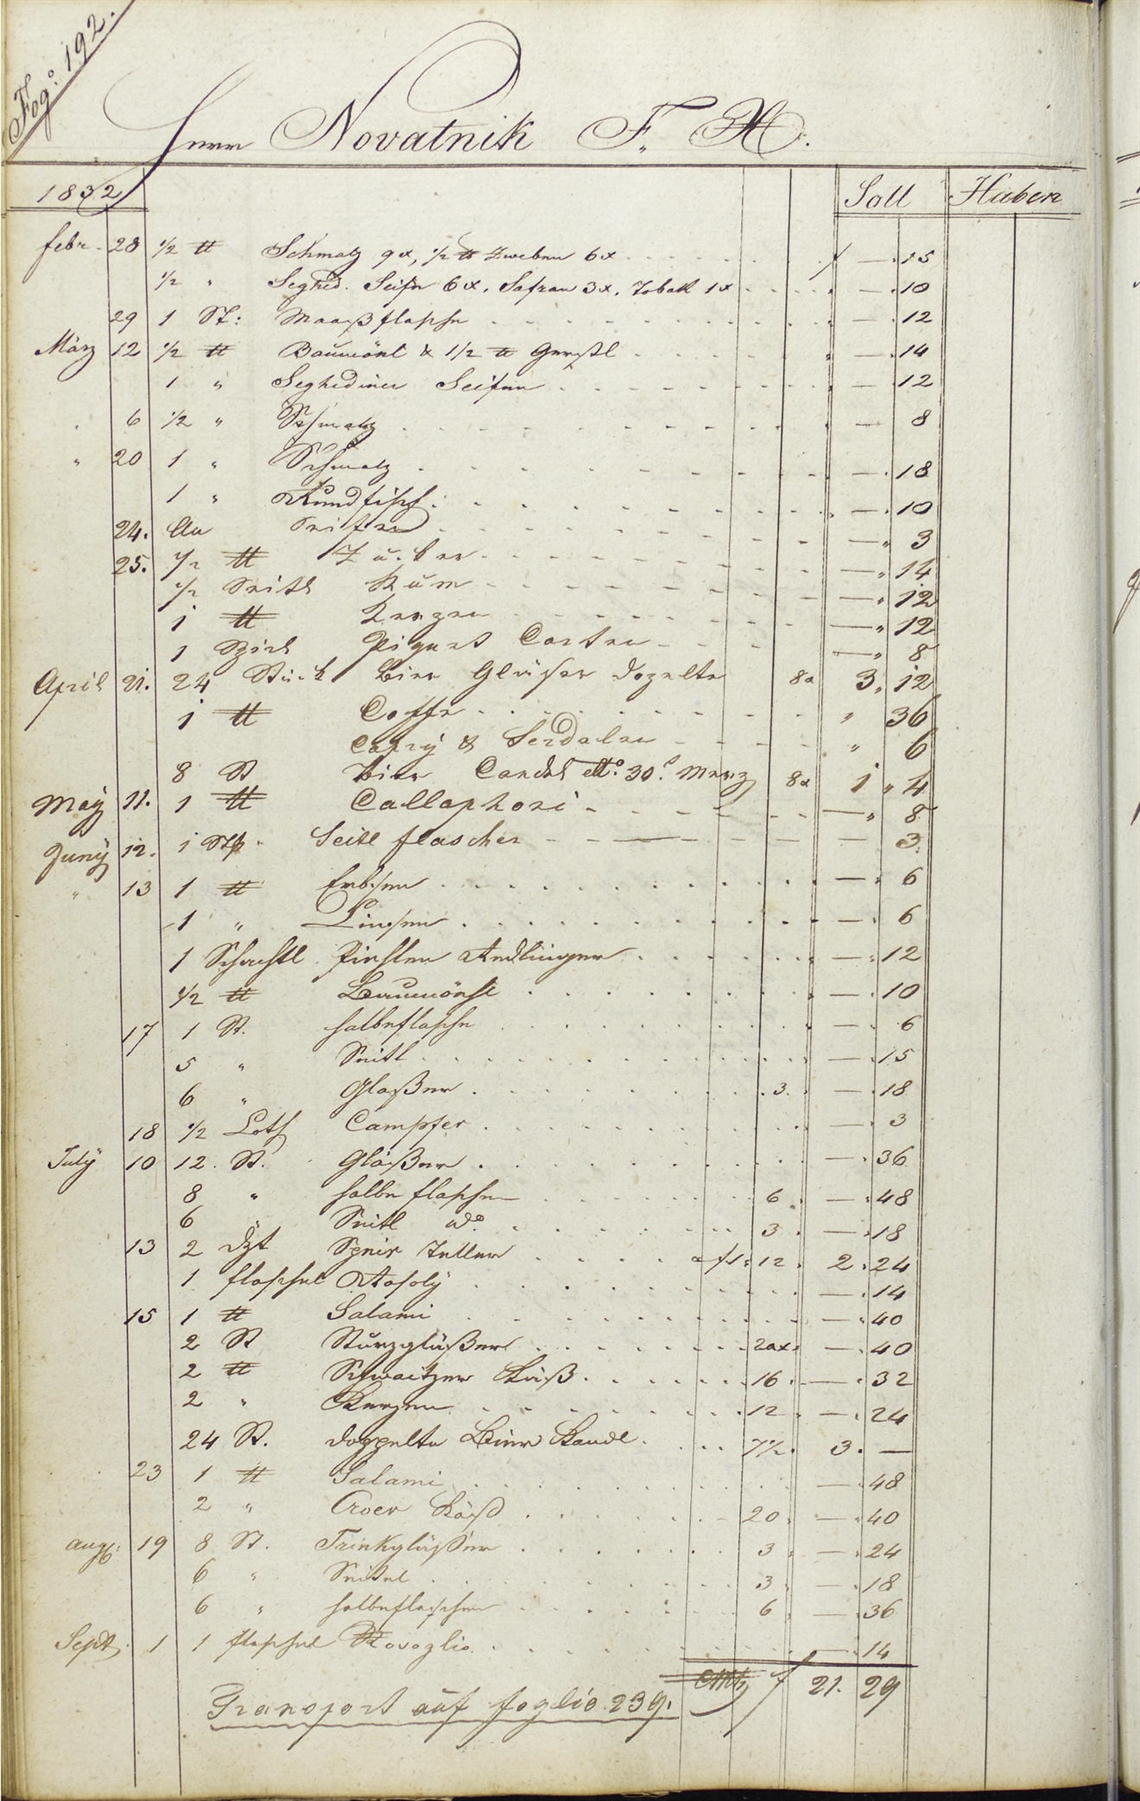 Fog: 192.
Herr Novatnik F.
1832 Soll Haben
Febr. 28 1/2 ℔ Schmalz 9x, 1/2 ℔ Zweben 6x f — . 15
1/2 " Seghed. Seife 6x. Safran 3x. Tobak 1x — . 10
29 1 St: Maaßflasche — . 12
März 12 1/2 ℔ Baumöhl & 1/2 ℔ Gerstl — . 14
1 " Seghediner Seifen — 12
. 6 1/2 " Schmalz — 8
" 20 1 " Schmalz — . 18
1 " Rundfisch — . 10
24. An Seifen — " 3
25. 1/2 ℔ Zucker — " 14
1/2 Seitl Rum — " 12
1 ℔ Kerzen — " 12
1 Piquet Carten — " 8
April 21. 24 Stück Bier Gläser dopelte 8x 3 " 12
1 ℔ Coffe " 36
& Serdalen " 6
8 St Bier 30. Merz 8x 1 " 4
May 11. 1 ℔ Callaphoni — " 8
Juny 12. 1 Seitl flaschen — 3.
" 13 1 ℔ Erbsen — . 6
1 " Linsen — . 6
1 Schachtl — . 12
1/2 ℔ Baumöhl — . 10
17 1 St. halbeflasche — . 6
5 " Seitl — . 15
6 " Glaßer . 3. — . 18
18 1/2 Loth Campfer — . 3
July 10 12. St. Gläßer — . 36
8 " halbe flaschen 6 . — . 48
6 Seitl do. 3 . — . 18
13 2 Dzt Speis Teller a f 1 . 12 . 2 . 24
1 flaschel Rosoly — . 14
15 1 ℔ Salami — . 40
2 St Sturzgläßer 20x. — . 40
2 ℔ Schwaitzer Käß 16 . — . 32
2 " Kerzen 12 . — . 24
24 St. doppelte Bier 7 1/2. 3. —
23 1 ℔ Salami — . 48
2 " Käß 20 . — . 40
Aug: 19 8 St. Trinkgläßer 3 . — . 24
6 " Seitel 3 . — . 18
6 " halbeflaschen 6 . — . 36
Sept. 1 1 flaschel Rosoglio — . 14
f 21. 29
Transport auf foglio 239.